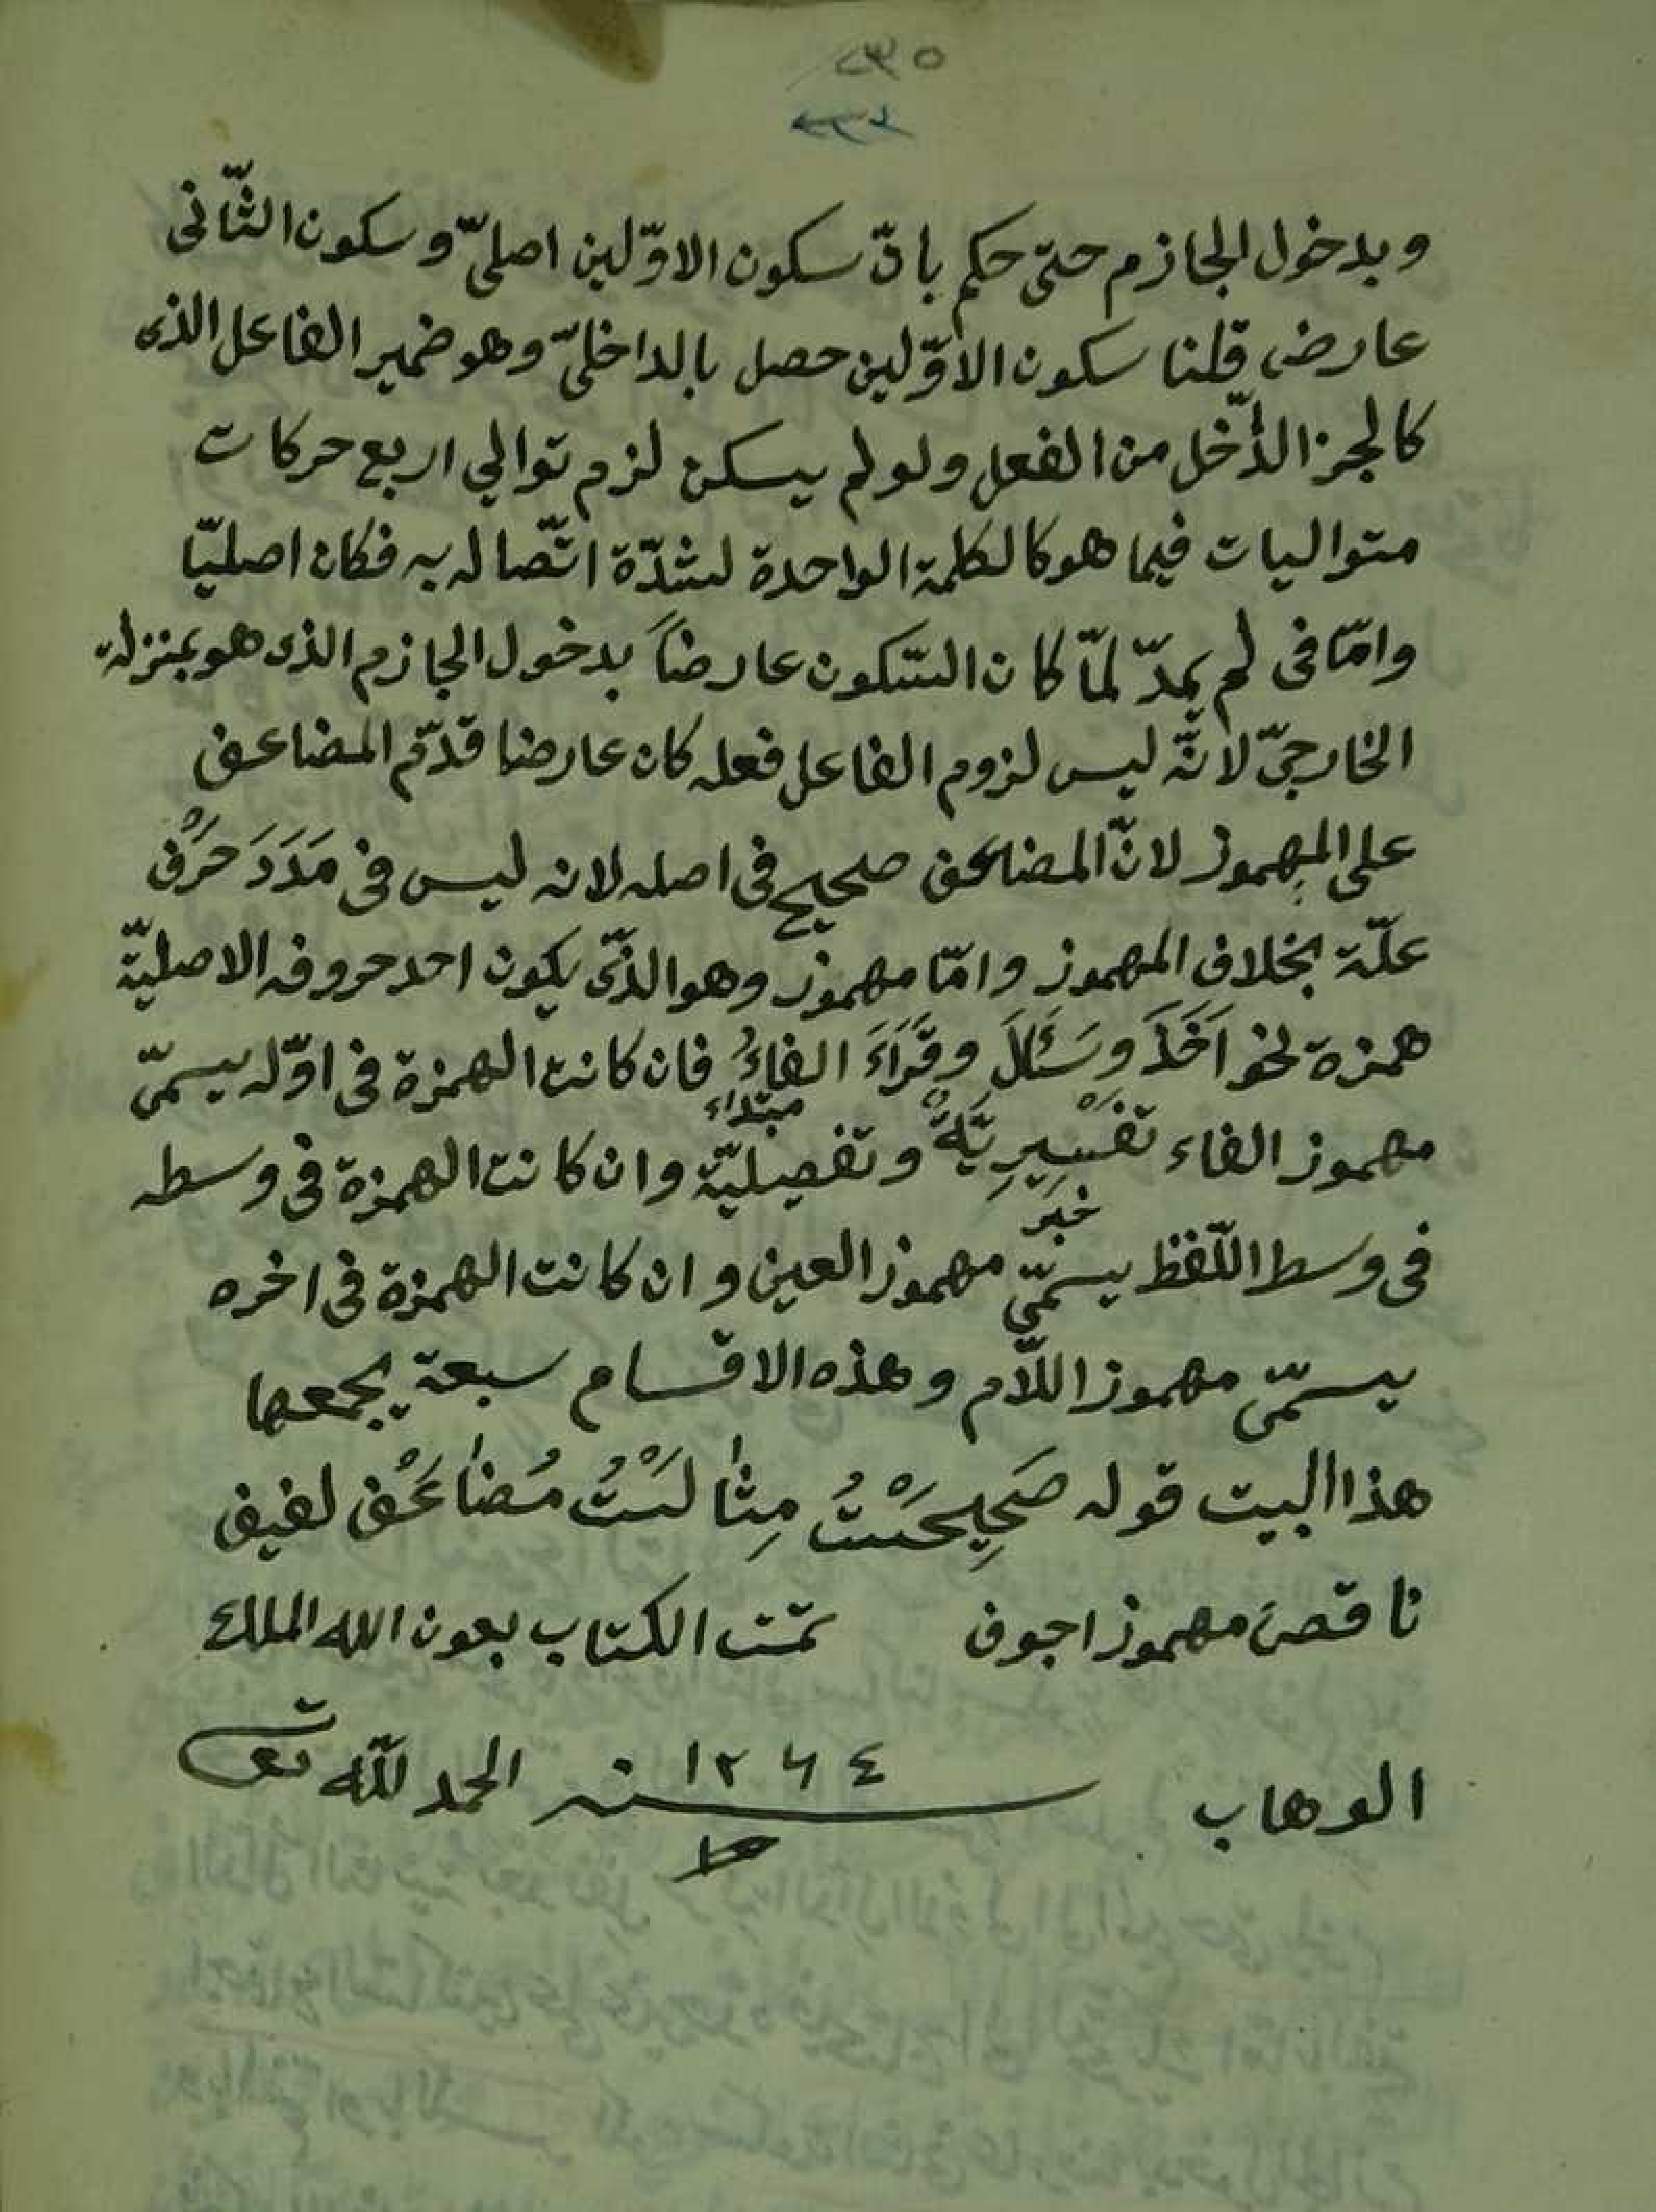 ٢٣٥
وبدخول الجازم حتى حكم بانّ سكون الاوّلين اصلىّ وسكون الثّانى
عارض قلنا سكون الاوّلين حصل بالداخلىّ وهو ضمير الفاعل الذى
كالجزء الدّخل من الفعل ولو لم يسكن لزم توالي اربع حركات
متواليات فيما هو كالكلمة الواحدة لشدّة اتّصاله به فكان اصليّا
وامّا فى لم يمدّ لمّا كان السّكون عارضاً بدخول الجازم الذى هو بمنزلة
الخارجىّ لانّه ليس لزوم الفاعل فعله كان عارضا قدّم المضاعف
على المهموز لانّ المضاعف صحيح فى اصله لانه ليس فى مَدَدَ حَرْف
علّة بخلاف المهموز وامّا مهموز وهو الذّى يكون احد حروفه الاصليّة
همزة نحو اَخَذَ وسَئَلَ وقَرَاَءَ الفاءُ فان كانت الهمزة فى اوّله يسمّى
مبتداء
مهموز الفاء تَفْسِيرِيَّةٌ وتفصيليّة وان كانت الهمزة فى وسطه
خبر
فى وسط اللّفظ يسمّى مهموز العين وان كانت الهمزة فى اخره
يسمّى مهموز اللّام وهذه الاقسام سبعة يجمعها
هذا البيت قوله صَحِيحَسْتُ مِثٰا لَسْتُ مُضٰاعَفْ لفيف
ناقص مهموز اجوف تمّت الكتاب بعون الله الملك
الوهاب سنه ١٢٦٤ الحمد للّه تع